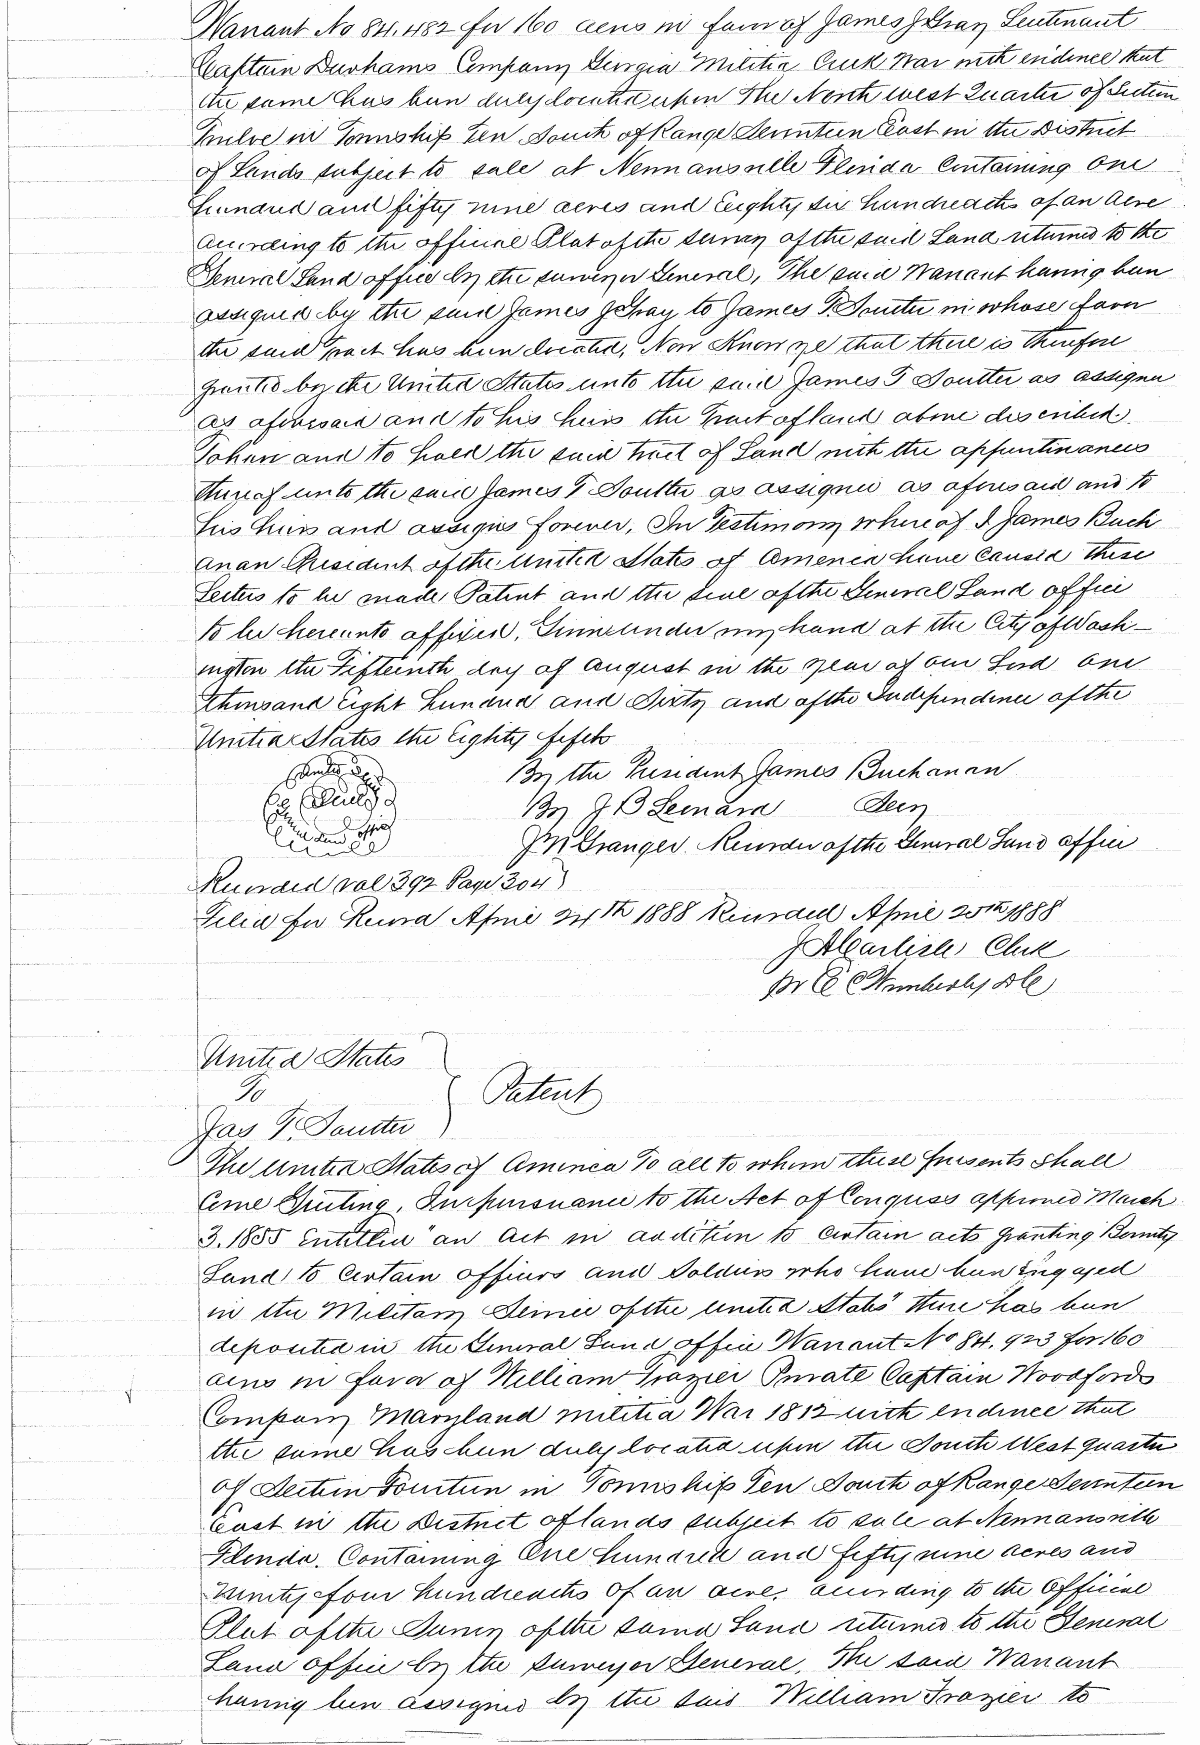 Warrant No 84.482 for 160 acres in favor of James J Gray Leutenant
Captain Durhams Company Georgia Militia Creek War with evidence that
the same has been duly located upon The North west Quarter of Section
Twelve in Township Ten South of Range Seventeen East in the District
of Lands subject to sale at Newnansville Florida Containing one
hundred and fifty nine acres and Eighty six hundreaths of an Acre
according to the official Plat of the survey of the said Land returned to the
General Land office by the surveyor General, The said Warrant having been
assigned by the said James J Gray to James T. Soutter in whose favor
the said Tract has been located, Now Know ye that there is therefore
granted by the United States unto the said James T Soutter as assignee
as aforesaid and to his heirs the Tract of land above described.
To have and to hold the said tract of Land with the appurtinances
thereof unto the said James T Soutter as assignee as aforesaid and to
his heirs and assigns forever, In Testimony where of I James Buch
anan President of the United States of America have caused these
Letters to be made Patent and the seal of the General Land office
to be hereunto affixed, Given under my hand at the City of Wash-
ington the Fifteenth day of August in the year of our Lord one
thousand Eight hundred and Sixty and of the Independence of the
United States the Eighty fifth
By the President James Buchanan
By J B Leonard Secy
J N Granger Recorder of the General Land office
General Land office
Recorded vol 392 Page 304
Filed for Record April 24th 1888 Recorded April 25th 1888
J A Carlisle Clerk
pr E C Wimberly DC
United States
To
Patent
Jas T. Soutter
The United States of America To all to whom these presents shall
Come Greeting, In pursuance to the Act of Congress approved March
3. 1855 Entitled "an Act in addition to certain acts granting Bounty
Land to certain officers and Soldiers who have been Engaged
in the Military Service of the United States" there has been
deposited in the General Land office Warrant No 84.923 for 160
acres in favor of William Frazier Private Captain Woodfords
Company Maryland militia War 1812 with evidence that
the same has been duly located upon the South West quarter
of Section Fourteen in Township Ten South of Range Seventeen
East in the District of lands subject to sale at Newnansville
Florida. Containing One hundred and fifty nine acres and
ninety four hundreaths of an acre. according to the Official
Plat of the Survey of the said Land returned to the General
Land office by the surveyor General. The said Warrant
having been assigned by the said William Frazier to